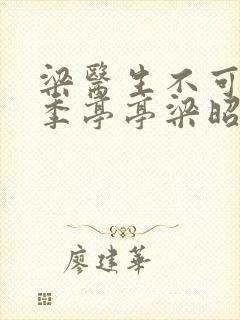 梁醫生不可
季亭亭梁昭
廖建華